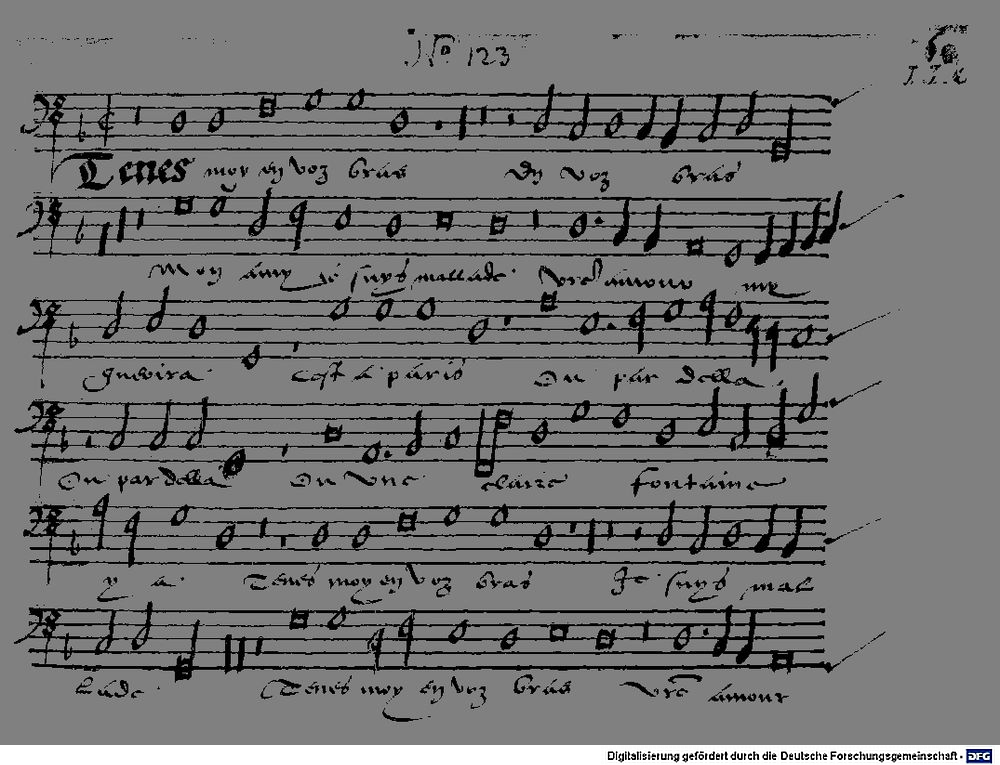 No 123
Tenes moy en voz bras En voz bras
Mon amy je suys mallade vre amour me
guerira cest a paris Ou par della
Ou par della Ou une claire fontaine
y a Tenes moy en voz bras Je suys mal
lade Tenes moy en voz bras vre amour
Digitalisierung gefördert durch die Deutsche Forschungsgemeinschaft - DFG